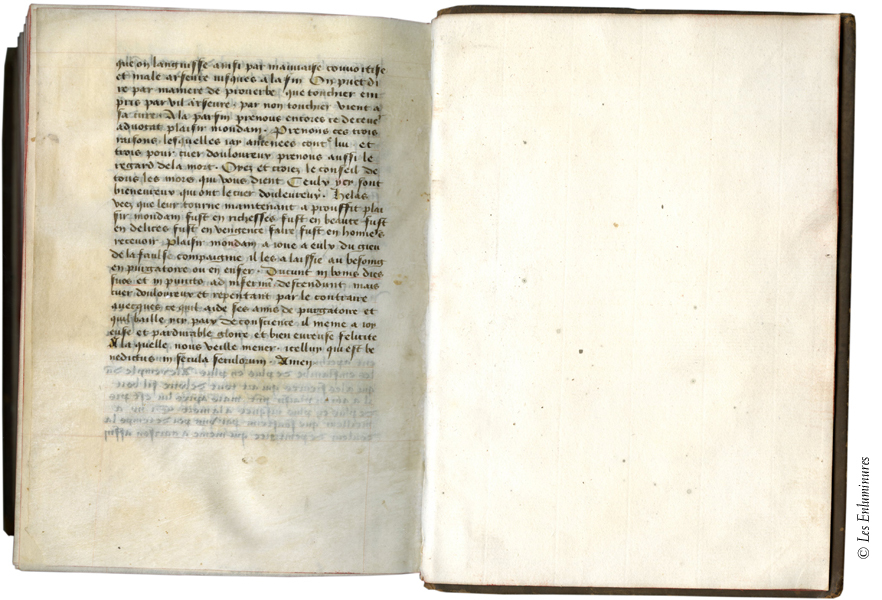 que on languisse ainsi par mauvaise convoitise
et male arseure jusques a la fin On puet di
re par maniere de proverbe que touchier em
pris par vil arseure par non touchier vient a
sa cure A la parfin prenons encores ce deceve
advocat plaisir mondain Prenons ces trois
raisons lesquelles jay contre lui et
trois pour cuer douloureux prenons aussi le
regard de la mort Oyez et croiez le conseil de
tous les mors qui vous dient Ceulx yci sont
bieneureux qui ont le cuer douleureux Helas
veez que leur tourne maintenant a prouffit plai
sir mondain fust en richesses fust en beaute fust
en delices fust en vengence faire fust en honneurs
recevoir Plaisir mondain a joue a eulx du gieu
de la faulse compaignie il les a laissie au besoing
en purgatoire ou en enfer Ducunt in bonis dies
suos et in puncto ad infernum descendunt mais
cuer douloureux et repentant par le contraire
quecques ce quil aide ses amis de purgatoire et
quil baille paix de conscience il meme a joy
euse et pardurable gloire et bien eureuse felicite
A la quelle nous veille mener icelluy qui est be
nedictus in secula seculorum Amen
© Les Enluminures